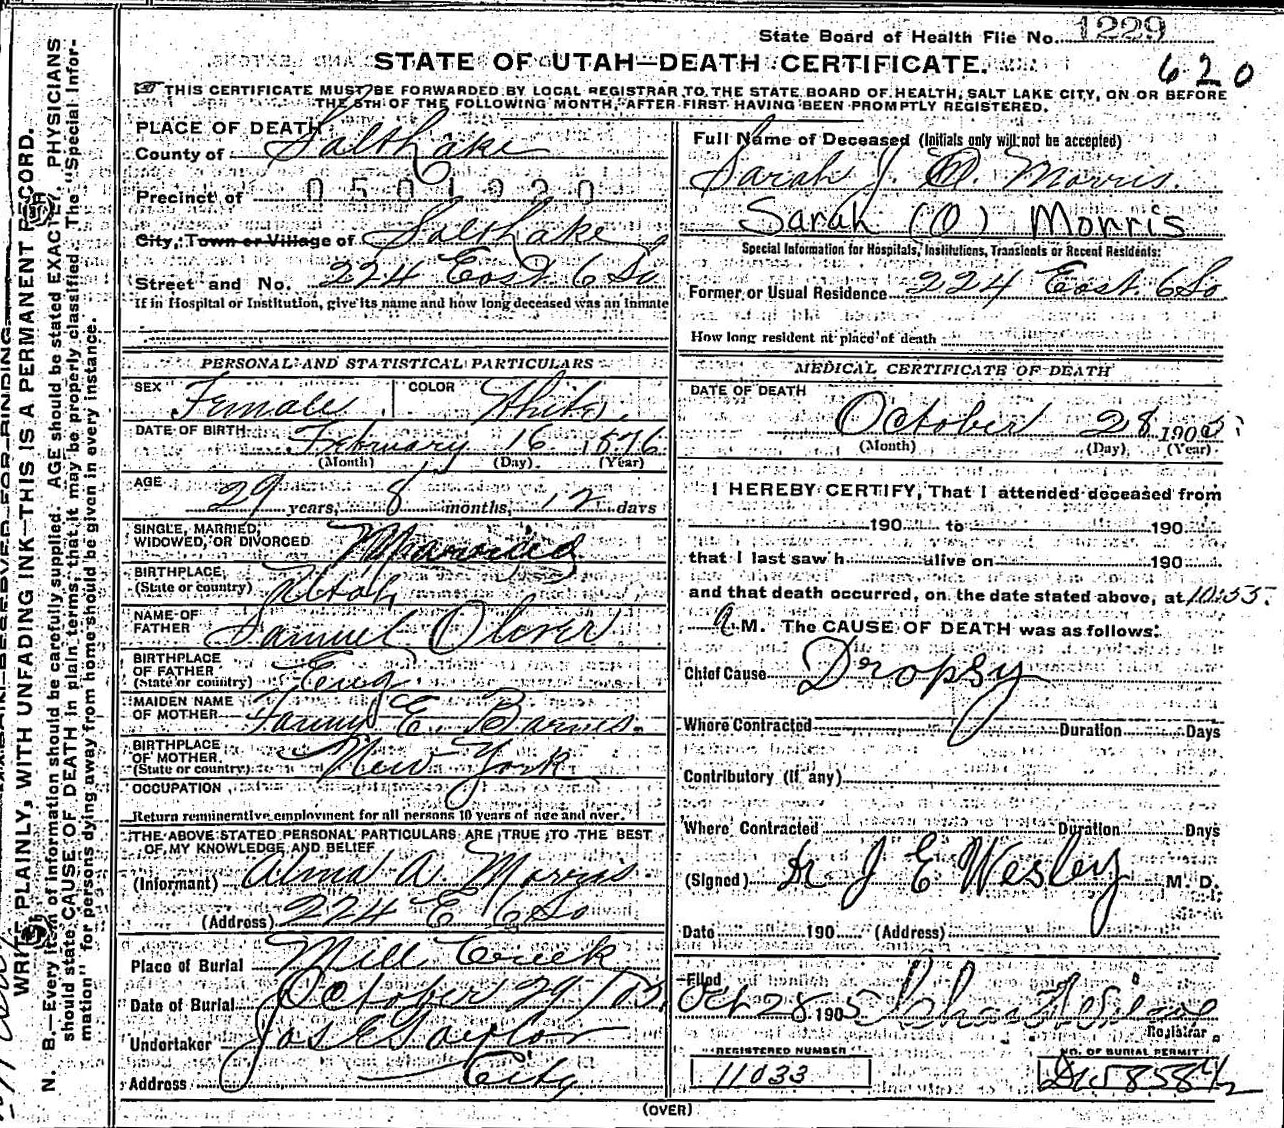 State Board of Health File No. 1229
STATE OF UTAH—DEATH CERTIFICATE.
620
THIS CERTIFICATE MUST BE FORWARDED BY LOCAL REGISTRAR TO THE STATE BOARD OF HEALTH, SALT LAKE CITY, ON OR BEFORE
THE 5TH OF THE FOLLOWING MONTH, AFTER FIRST HAVING BEEN PROMPTLY REGISTERED.
PLACE OF DEATH
County of Salt Lake
Precinct of 0501920
City, Town or Village of Salt Lake
Street and No. 224 East 6 So
If in Hospital or Institution, give its name and how long deceased was an inmate
PERSONAL AND STATISTICAL PARTICULARS
SEX Female COLOR White.
DATE OF BIRTH February 16 1876
(Month) (Day) (Year)
AGE
29 years, 8 months, 12 days
SINGLE, MARRIED,
WIDOWED, OR DIVORCED Married
BIRTHPLACE
(State or country) Utah
NAME OF
FATHER Samuel Oliver
BIRTHPLACE
OF FATHER
(State or country) Eng
MAIDEN NAME
OF MOTHER E. Barnes.
BIRTHPLACE
OF MOTHER
(State or country) New York
OCCUPATION
Return remunerative employment for all persons 10 years of age and over.
THE ABOVE STATED PERSONAL PARTICULARS ARE TRUE TO THE BEST
OF MY KNOWLEDGE AND BELIEF
(Informant) Alma A. Morris
(Address) 224 E 6 So
Place of Burial Mill Creek
Date of Burial October 29
Undertaker Jos E Taylor
Address City
Full Name of Deceased (Initials only will not be accepted)
Sarah J. O. Morris.
Sarah (O) Morris
Special Information for Hospitals, Institutions, Transients or Recent Residents:
Former or Usual Residence 224 East 6 So
How long resident at place of death
MEDICAL CERTIFICATE OF DEATH
DATE OF DEATH
October 28 1905
(Month) (Day) (Year)
I HEREBY CERTIFY, That I attended deceased from
190 to 190
that I last saw h alive on 190
and that death occurred, on the date stated above, at 10:55
A M. The CAUSE OF DEATH was as follows:
Chief Cause Dropsy
Where Contracted Duration Days
Contributory (If any)
Where Contracted Duration Days
(Signed) Dr J E Wesley M. D.
Date 190 (Address)
Filed
Oct 28 1905
Registrar
REGISTERED NUMBER
11033
NO. OF BURIAL PERMIT
(OVER)
WRITE PLAINLY, WITH UNFADING INK—THIS IS A PERMANENT RECORD.
N. B.—Every item of information should be carefully supplied. AGE should be stated EXACTLY. PHYSICIANS
should state CAUSE OF DEATH in plain terms, that it may be properly classified. The "Special Infor-
mation" for persons dying away from home should be given in every instance.